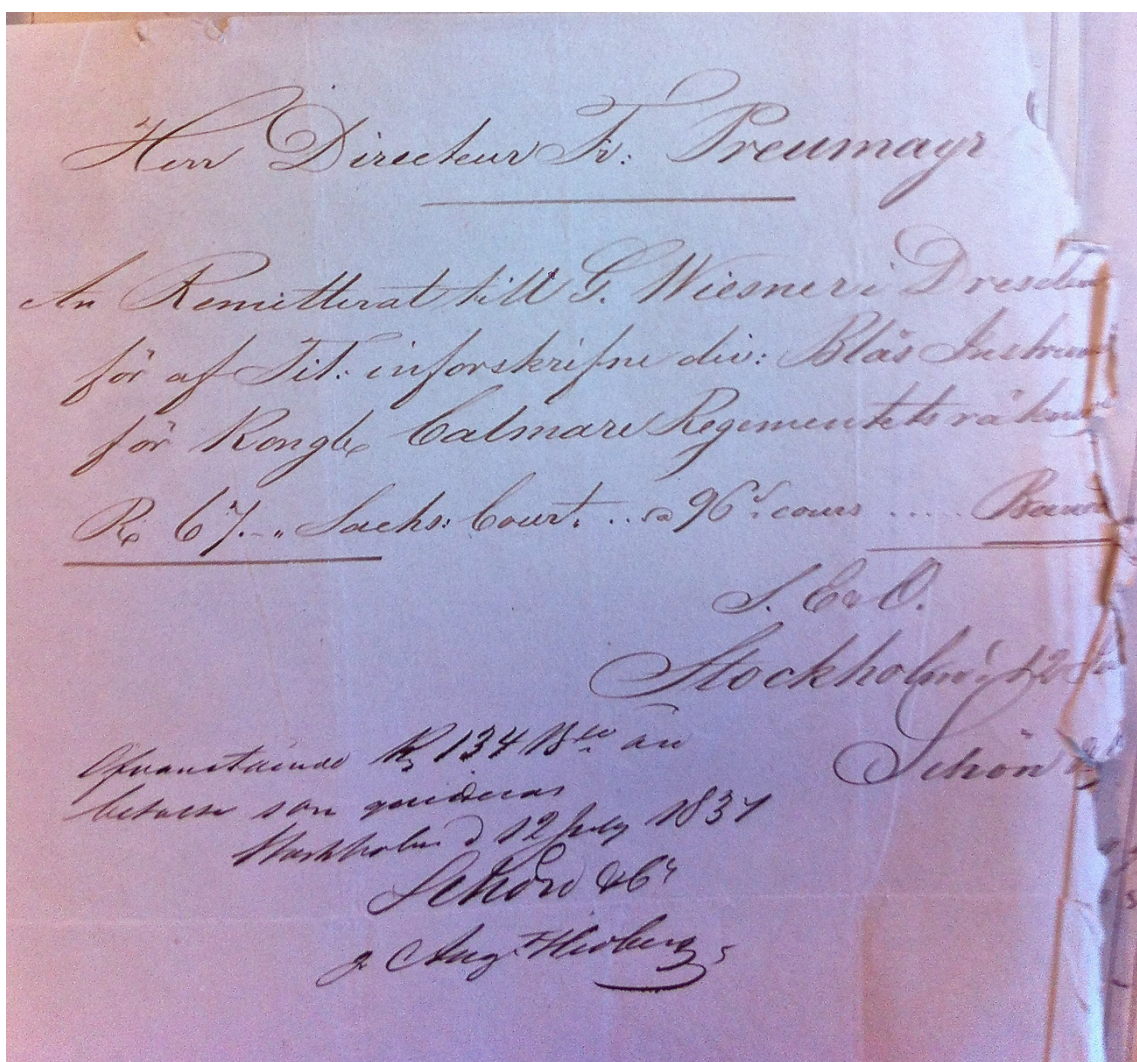 Herr Directeur Fr: Preumayr
An Remitterat till G. Wiesner i Dresden
för af Tit: inforskrifne div: Blås Instrum
för Kongl. Calmare Regementets räkn
R 67. „ Sachs: Court. ... a 96 s cours ..... Banco
S. E & O.
Stockholm d 12 Ju
Schön & C
Ofvanstående R 134 Bco äro
betalte som quitteras
Stockholm d 12 July 1837
Schön & Co
g. Aug